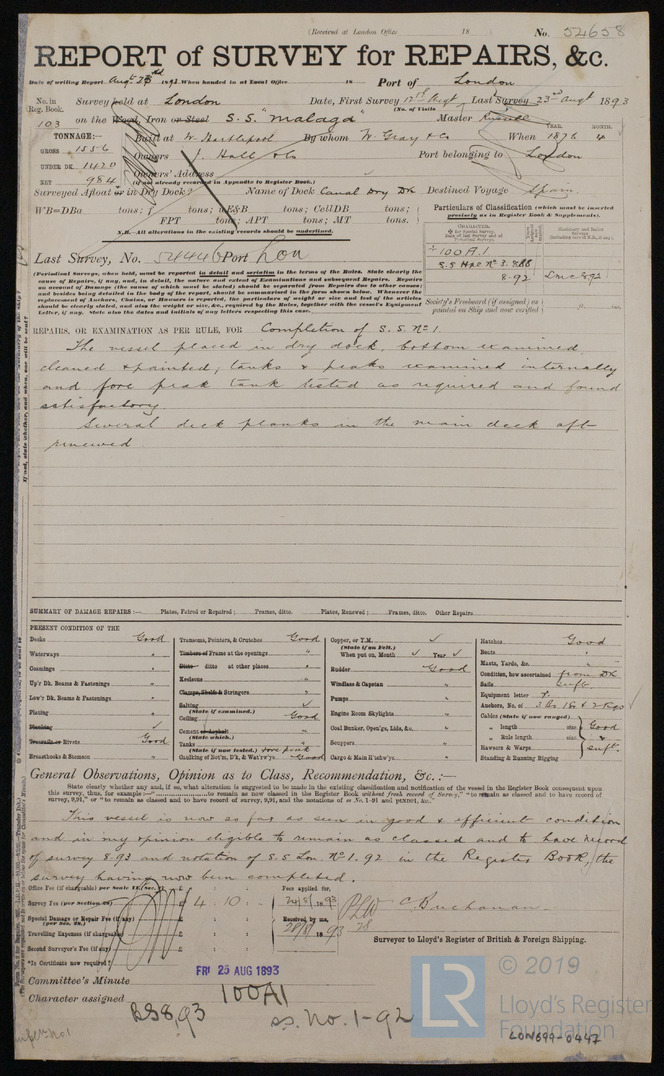 (Received at London Office 18
No. 54658
REPORT of SURVEY for REPAIRS, &c.
Date of writing Report Augt 23rd 1893 When handed in at Local Office 18 Port of London
No. in Reg. Book. Survey held at London Date, First Survey 12th Augt Last Survey 23rd Augt 1893
(No. of Visits
103 on the Wood, Iron or Steel S.S. "Malaga" Master Russell
TONNAGE:— Built at W. Hartlepool By whom W. Gray & Co When 1876 4
YEAR. MONTH.
GROSS 1556 Owners J. Hall & Co Port belonging to London
UNDER DK. 1420 Owners' Address
NET 984 (if not already recorded in Appendix to Register Book.)
Surveyed Afloat or in Dry Dock? Name of Dock Canal Dry Dk Destined Voyage Spain
WB=DBa tons; f tons; uE&B tons; CellDB tons;
FPT tons; APT tons; MT tons.
N.B.—All alterations in the existing records should be underlined.
Particulars of Classification (which must be inserted precisely as in Register Book & Supplements).
Last Survey, No. 54446 Port Lon
100A.1
S.S Hac No 3. 9.88
8.92 Lmc 8.92
(Periodical Surveys, when held, must be reported in detail and seriatim in the terms of the Rules. State clearly the
cause of Repairs, if any, and, in detail, the nature and extent of Examinations and subsequent Repairs. Repairs
on account of Damage (the cause of which must be stated) should be separated from Repairs due to other causes;
and besides being detailed in the body of the report, should be summarised in the form shown below. Whenever the
replacement of Anchors, Chains, or Hawsers is reported, the particulars of weight or size and test of the articles
should be clearly stated, and also the weight or size, &c., required by the Rules, together with the vessel's Equipment
Letter, if any. State also the dates and initials of any letters respecting this case.
Society's Freeboard (if assigned) as painted on Ship and now verified
REPAIRS, OR EXAMINATION AS PER RULE, FOR Completion of S.S. No 1.
The vessel placed in dry dock, bottom examined
cleaned & painted, tanks & peaks examined internally
and fore peak tank tested as required and found
satisfactory.
Several deck planks in the main deck aft
renewed
SUMMARY OF DAMAGE REPAIRS:— Plates, Faired or Repaired; Frames, ditto. Plates, Renewed; Frames, ditto. Other Repairs
PRESENT CONDITION OF THE
Decks Good
Waterways "
Coamings "
Up'r Dk. Beams & Fastenings "
Low'r Dk. Beams & Fastenings "
Plating "
Planking
Treenails or Rivets Good
Breasthooks & Stemson "
Transoms, Pointers, & Crutches Good
Timbers or Frame at the openings "
Ditto ditto at other places "
Keelsons "
Clamps, Shelfs & Stringers "
Salting
(State if examined.)
Ceiling Good
Cement or Asphalt "
(State which.)
Tanks "
(State if now tested.) Fore peak
Caulking of Bot'm, D'k, & Wat'rw'ys Good
Copper, or Y.M.
(State if on Felt.)
When put on, Month Year
Rudder Good
Windlass & Capstan "
Pumps "
Engine Room Skylights "
Coal Bunker, Open'gs, Lids, &c. "
Scuppers "
Cargo & Main H'tchw'ys "
Hatches Good
Boats "
Masts, Yards, &c. "
Condition, how ascertained from Dk
Sails Suft.
Equipment letter
Anchors, No. of 3 Bs 1 St & 2 Kgs
Cables (State if now ranged)
" length size Good
" Rule length size
Hawsers & Warps Suft.
Standing & Running Rigging
General Observations, Opinion as to Class, Recommendation, &c.:—
State clearly whether any, and if so, what alteration is suggested to be made in the existing classification and notification of the vessel in the Register Book consequent upon
this survey, thus, for example "to remain as now classed in the Register Book without fresh record of Survey," "to remain as classed and to have record of
survey, 9,91," or "to remain as classed and to have record of survey, 9,91, and the notations of
This vessel is now as far as seen in good & efficient condition
and in my opinion eligible to remain as classed and to have record
of survey 8.93 and notation of S.S Lon. No 1. 92 in the Register Book, the
survey having now been completed.
Office Fee (if chargeable) per Scale II. (Sec.) £
Fees applied for,
Survey Fee (per Section 29) £ 4 . 10 . -
24/8/1893
Special Damage or Repair Fee (if any) (per Sec. 28.) £
Received by me,
Travelling Expenses (if chargeable) £
28/8/1893
Second Surveyor's Fee (if any) £
C. Buchanan.
Surveyor to Lloyd's Register of British & Foreign Shipping.
"Is Certificate now required"
Committee's Minute FRI 25 AUG 1893
Character assigned 100A1
BS8,93 ss. No. 1-92
LR
© 2019
Lloyd's Register
Foundation
LON699-0447